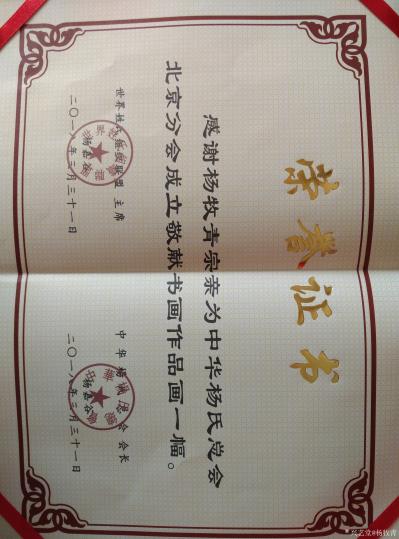 荣誉证书
感谢杨牧青宗亲为中华杨氏总会
北京分会成立敬献书画作品画一幅。
世界姓 联盟 主席
杨嘉谷
二〇一八年三月三十一日
中华 会 会长
杨嘉谷
二〇一八年三月三十一日
兴艺堂@杨牧青